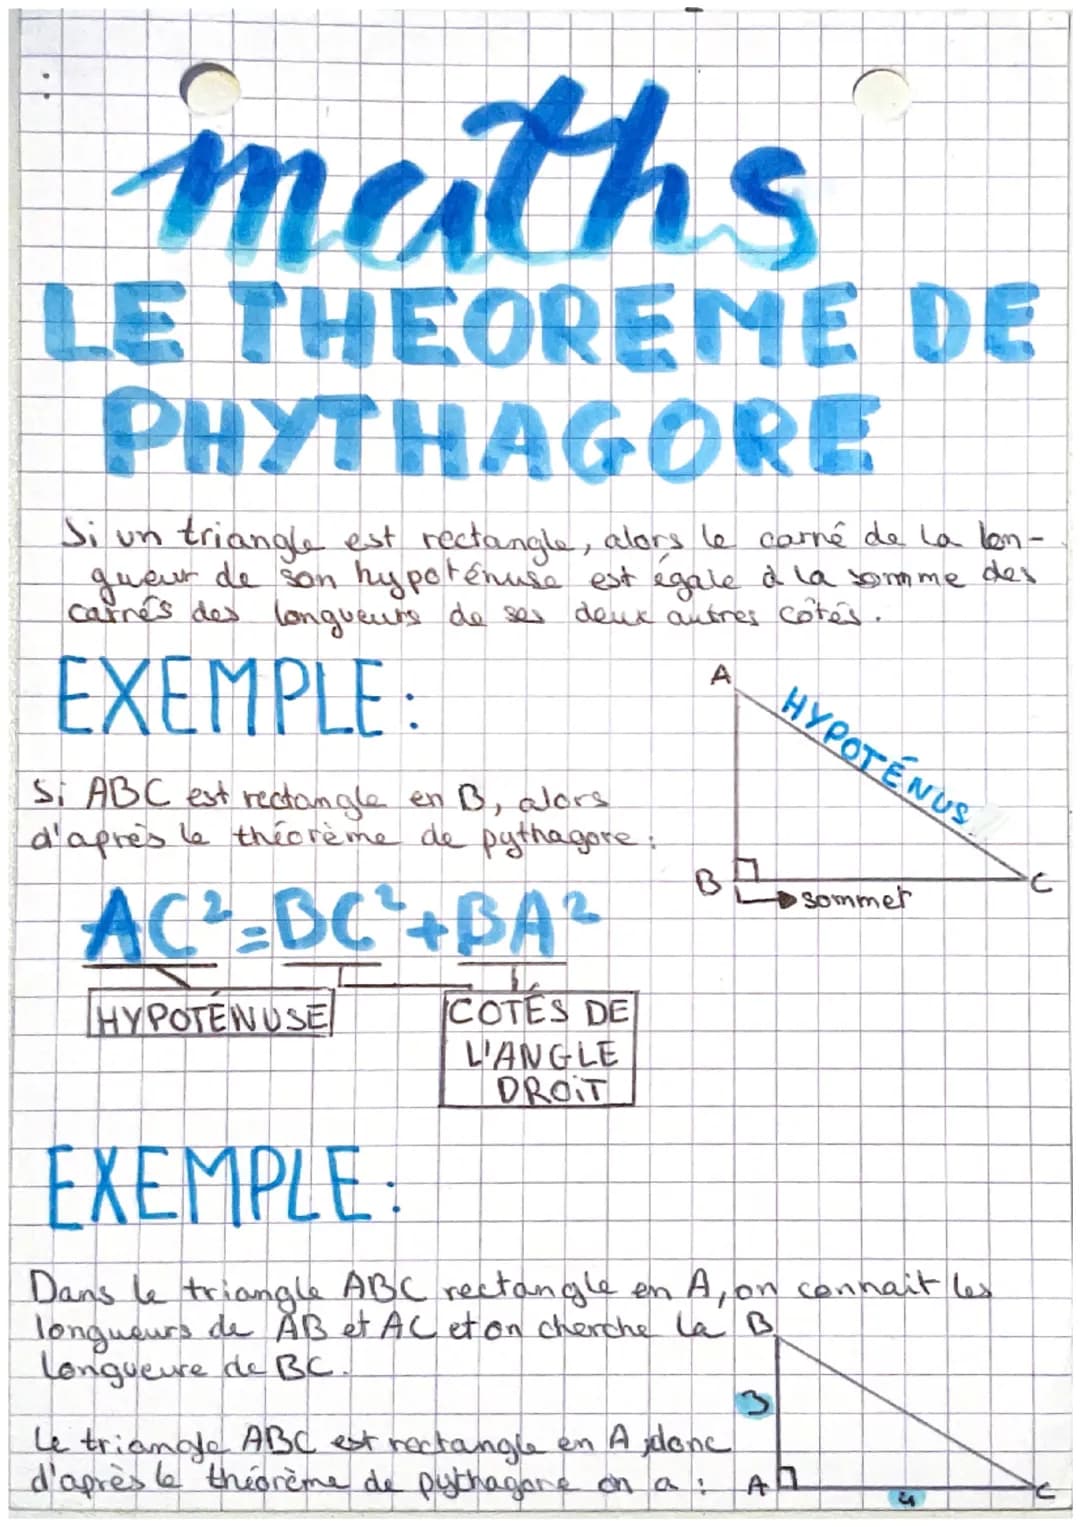 maths
LE THEOREME DE
PHYTHAGORE
Si un triangle est rectangle, alors le carré de la lon-
gueur de son hypoténuse est égale à la somme des
carrés des longueurs de ses deux autres côtés.
EXEMPLE:
A
HYPOTÉNUS
Si ABC est rectangle en B, alors
d'après le théorème de pythagore:
B
C
sommet
AC²=BC²+BA²
HYPOTÉNUSE
COTÉS DE
L'ANGLE
DROiT
EXEMPLE:
Dans le triangle ABC rectangle en A, on connait les
longueurs de AB et AC et on cherche la
longueure de BC.
B
3
Le triangle ABC est rectangle en A, donc
d'après le théorème de pythagore on a :
A
4
C